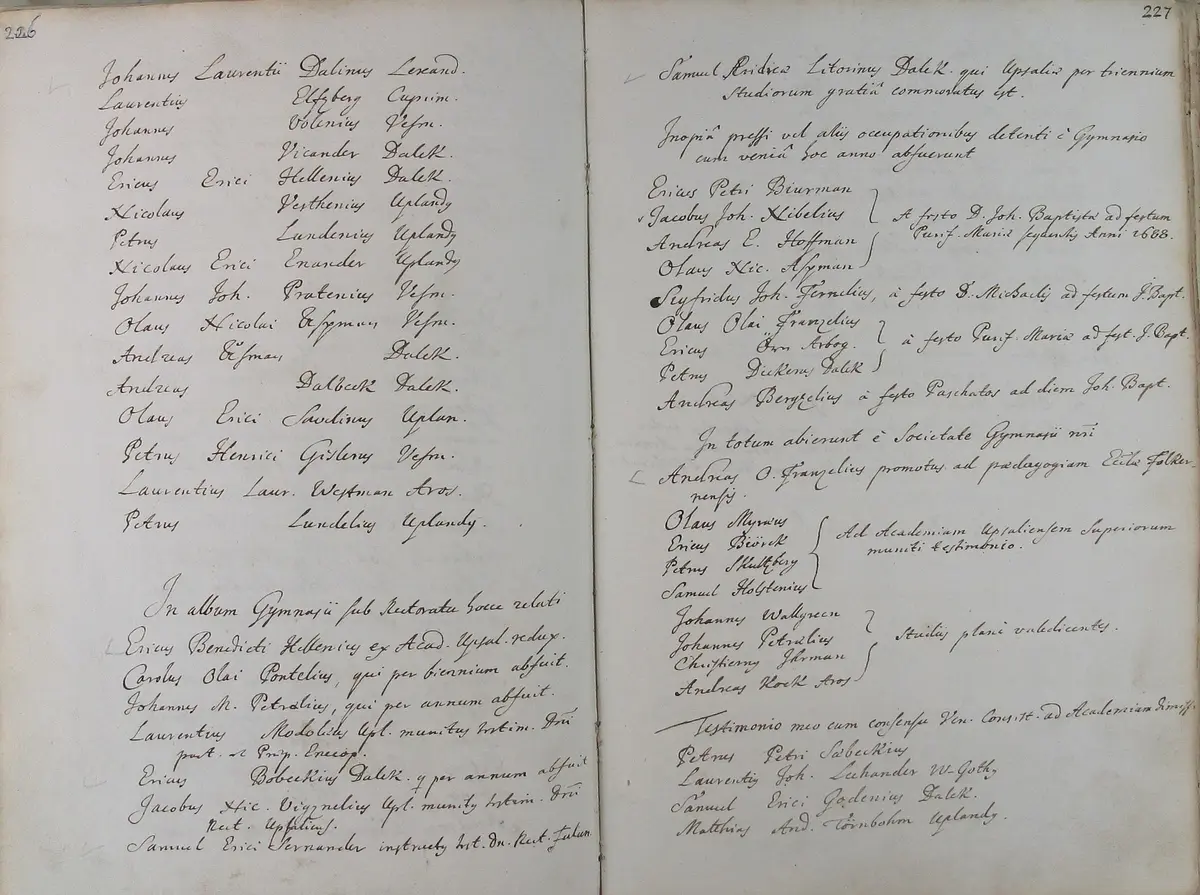 226
Johannes Laurentii Dalinus Lexand.
Laurentius Elfzberg Cuprim.
Johannes Volenius Vesm.
Johannes Vicander Dalek.
Ericus Erici Hellenius Dalek.
Nicolaus Vesthenius Uplandg
Petrus Lundenius Uplandg
Nicolaus Erici Enander Uplandg
Johannes Joh. Pratenius Vesm.
Olaus Nicolai Vesm.
Andreas Dalek.
Andreas Dalbeck Dalek.
Olaus Erici Savdinus Uplan.
Petrus Henrici Gislerus Vesm.
Laurentius Laur. Westman Aros.
Petrus Lundelius Uplandg.
In album Gymnasii sub Rectoratu hocce relati
Ericus Benedicti Hellenius ex Acad. Upsal. redux.
Carolus Olai Pontelius, qui per biennium absuit.
Johannes M. Petrælius, qui per annum absuit.
Laurentius Upl. munitus testim. Dñi
past. & Præp. Enecop.
Ericus Bobeckius Dalek. q per annum absuit
Jacobus Nic. Upl. munitg testim. Dñi
Rect. Upsaliens.
Samuel Erici Fernander instructg test. Dn. Rect. Falun.
227
Samuel Andreæ Litorinus Dalek. qui Upsaliæ per triennium
studiorum gratiâ commoratus est.
Inopiâ pressi vel aliis occupationibus detenti è Gymnasio
cum veniâ hoc anno absuerunt
Ericus Petri Biurman
Jacobus Joh. Nibelius
A festo D. Joh. Baptistæ ad festum
Purif. Mariæ sequentis Anni 1688.
Andreas E. Hoffman
Olaus Nic. Asyman
Sigfridus Joh. Fernelius, à festo D. Michaelis ad festum J. Bapt.
Olaus Olai Franzelius
Ericus Örn Arbog.
à festo Purif. Mariæ ad fest. J. Bapt.
Petrus Dickerus Dalek
Andreas Bergzelius à festo Paschatos ad diem Joh. Bapt.
In totum abierunt è Societate Gymnasii nr̃i
Andreas O. Franzelius promotus ad pædagogiam Eccles Folker-
nensis.
Olaus Myræus
Ericus Biörck
Ad Academiam Upsaliensem Superiorum
muniti testimonio.
Petrus Skultzberg
Samuel Holstenius
Johannes Wallgreen
Johannes Petrælius
Studiis planè valedicentes.
Christierng Jarman
Andreas Kock Aros
Testimonio meo cum consensu Ven. Consist. ad Academiam dimissi
Petrus Petri Sæbeckius
Laurentig Joh. Lechander W-Gothg
Samuel Erici Godenius Dalek.
Matthias And. Törnbohm Uplandg.